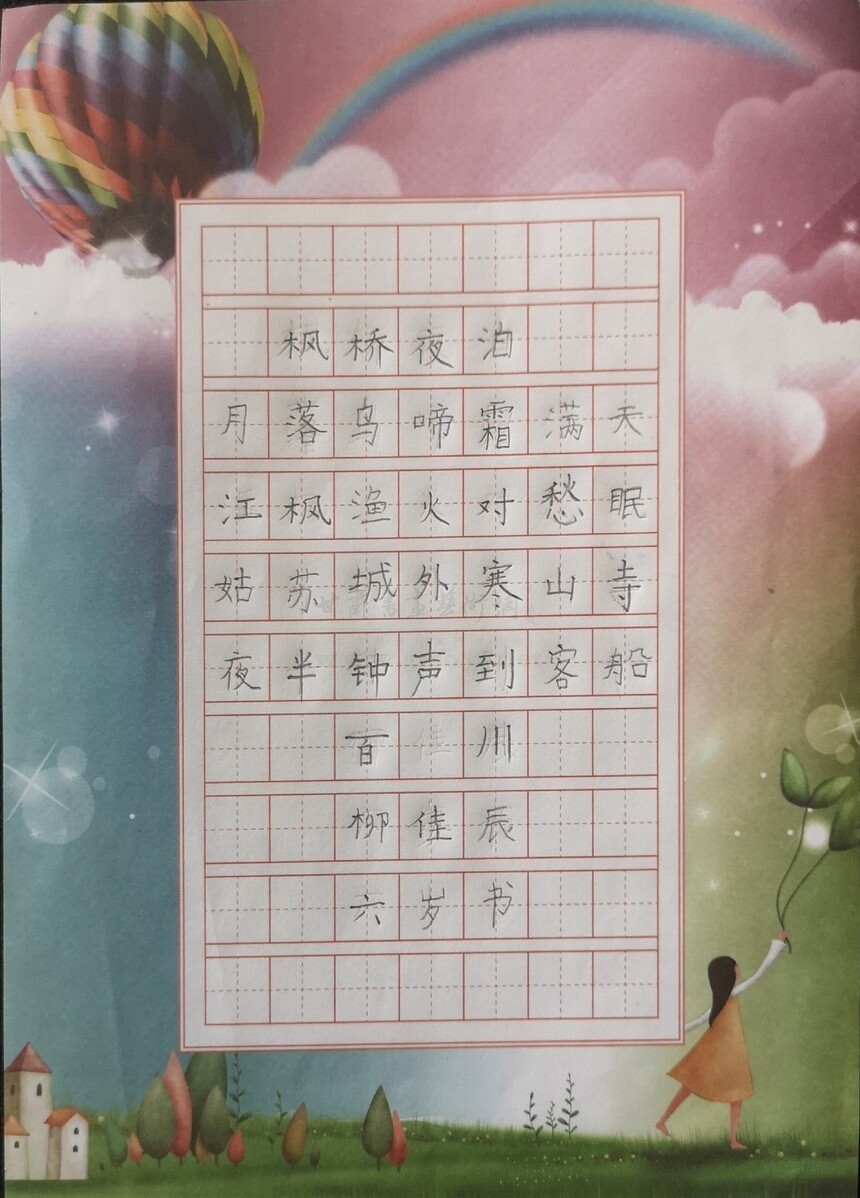 枫桥夜泊
月落鸟啼霜满天
江枫渔火对愁眠
姑苏城外寒山寺
夜半钟声到客船
百佳川
柳佳辰
六岁书